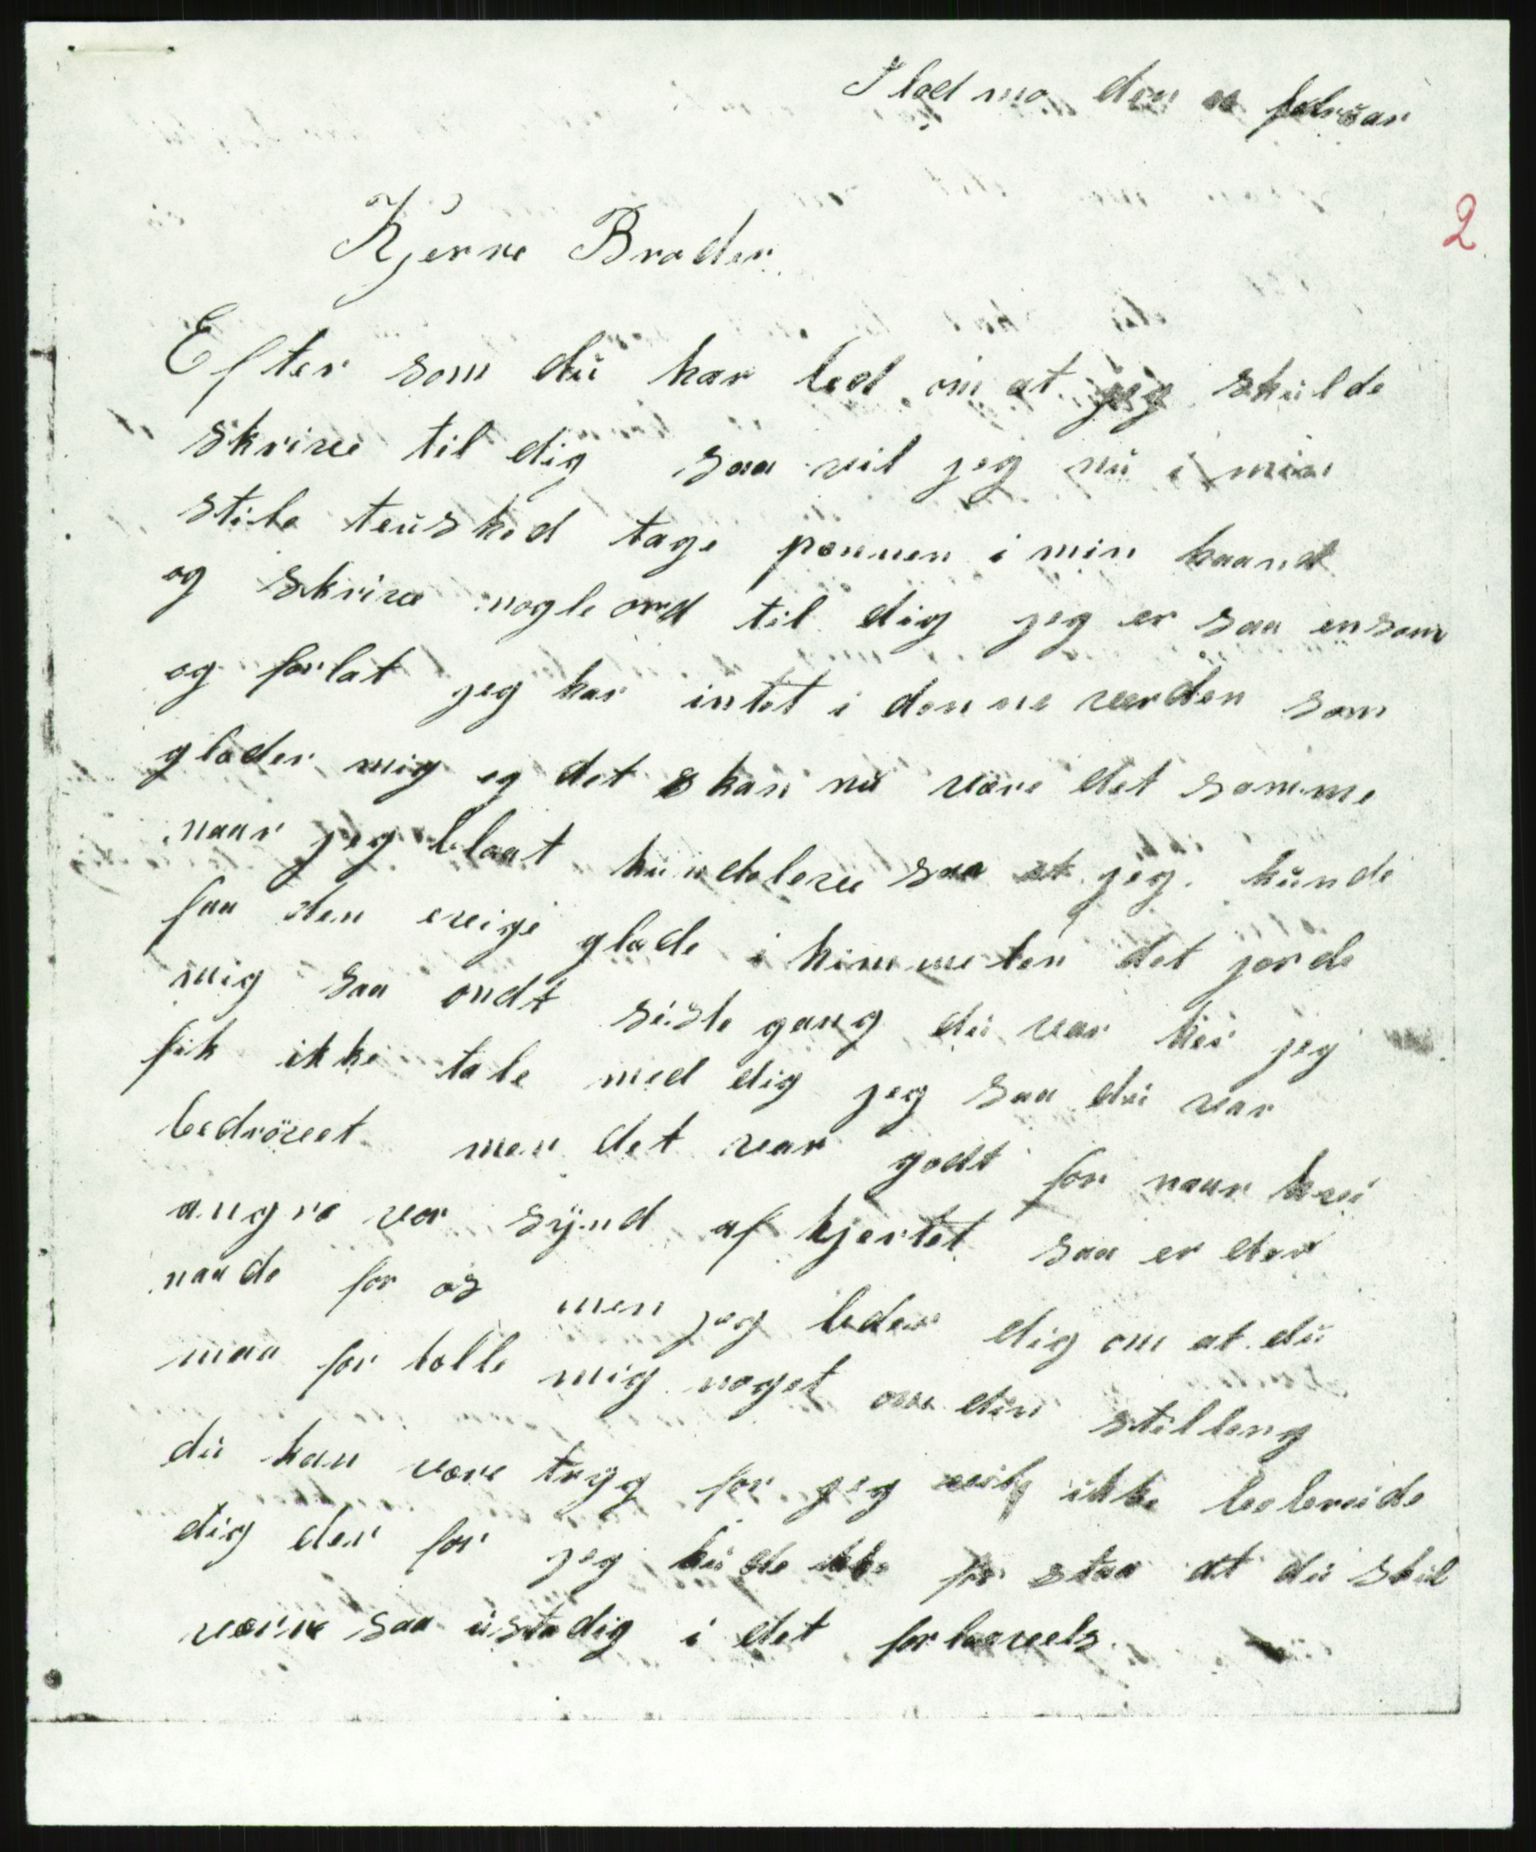 den februar
2
Kjerre Broder
Efter som dü har bed om at jeg skülde
skrive til dig saa vil jeg nü i min
stile teüshed tage pennen i min haand
og skrive nogle ord til dig jeg er saa ensom
og forlat jeg har intet i denne verden som
glæder mig og det skan nü være det samme
naar jeg blaat künde leve saa at jeg künde
faa den evige glæde i himmelen det jorde
mig saa ondt siste gang dü var her jeg
fik ikke tale med dig jeg saa dü var
bedrövet men det var godt for naar hvi
angre vor sÿnd af hjertet saa er der
naade for os men jeg beder dig om at dü
maa for tolle mig noget om din stilleng
dü kan være tryg for jeg vil ikke bebreide
dig der for jeg küde ikke for staa at dü skül
værre saa üstadig i det